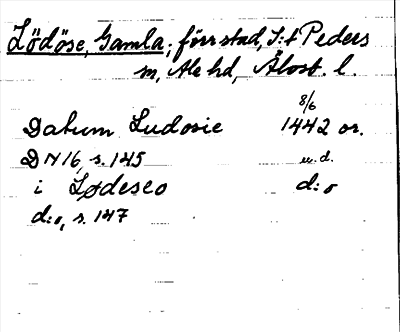 Lödöse, Gamla; förr stad, S:t Peders
sn, Ale hd, Älvsb. l.
Datum Ludosie 8/6 1442 or.
DN 16, s. 145 u.d.
i Lødeseo d:o
d:o, s. 147